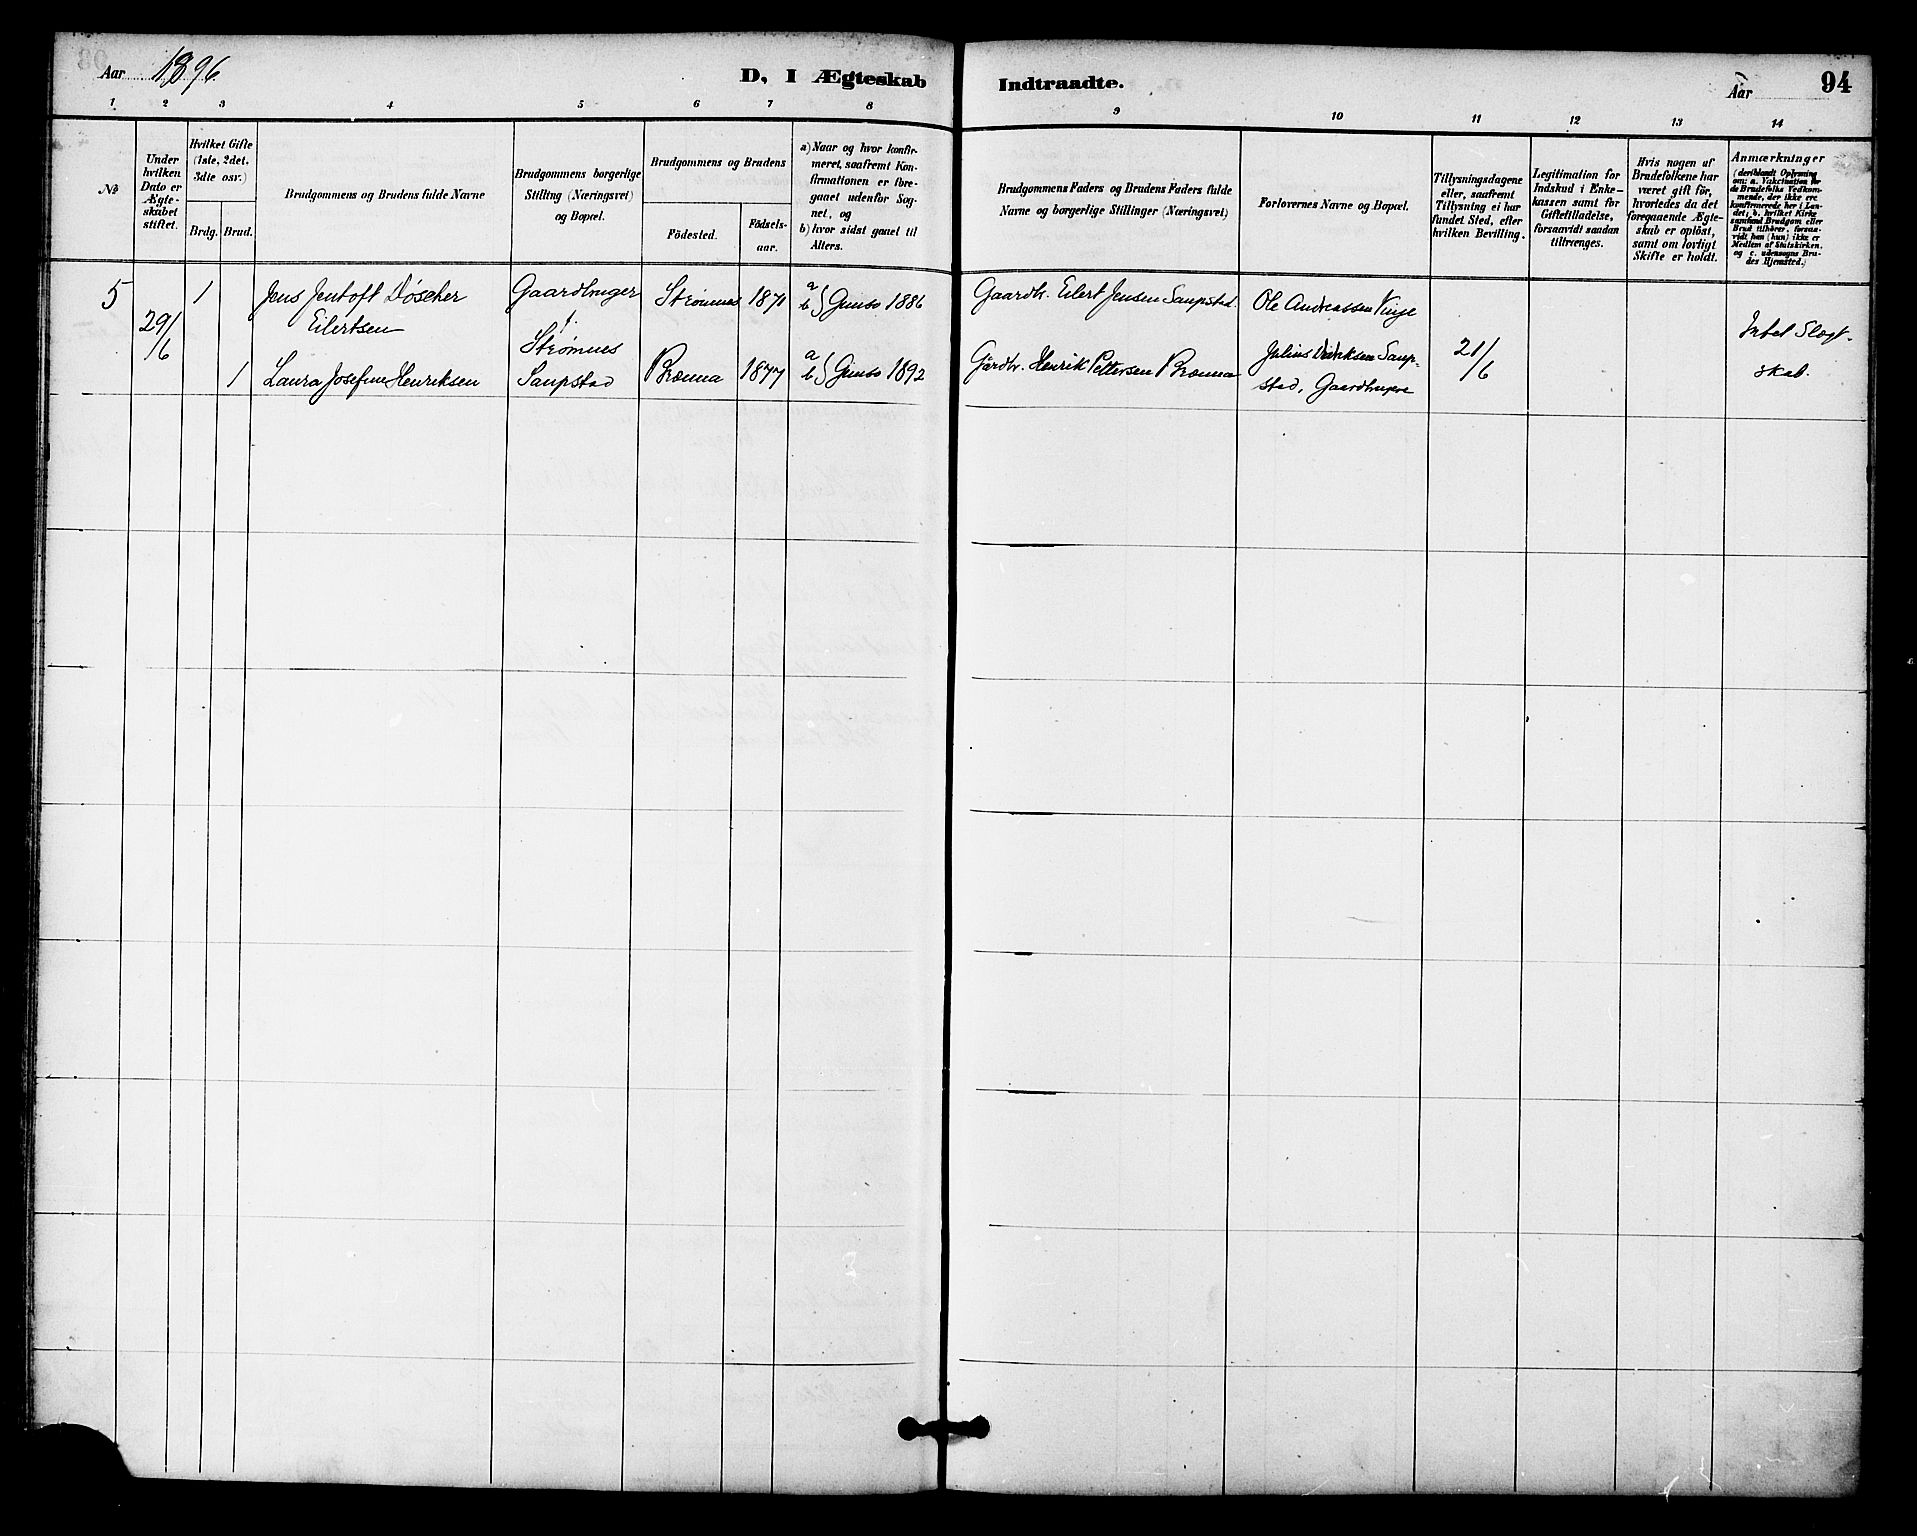 Aar 1896.
D, I Ægteskab Indtraadte.
Aar
94
1 2 3 4 5 6 7 8 9 10 11 12 13 14
№
Under hvilken Dato er Ægteskabet stiftet.
Hvilket Gifte (1ste, 2det, 3die osv.)
Brdg. Brud.
Brudgommens og Brudens fulde Navne
Brudgommens borgerlige Stilling (Næringsvei) og Bopæl.
Brudgommens og Brudens
Födested.
Födsels-aar.
a) Naar og hvor konfirmeret, saafremt Konfirmationen er foregaaet udenfor Sognet, og
b) hvor sidst gaaet til Alters.
Brudgommens Faders og Brudens Faders fulde Navne og borgerlige Stillinger (Næringsvei)
Forlovernes Navne og Bopæl.
Tillysningsdagene eller, saafremt Tillysning ei har fundet Sted, efter hvilken Bevilling.
Legitimation for Indskud i Enkekassen samt for Giftetilladelse, forsaavidt saadan tiltrænges.
Hvis nogen af Brudefolkene har været gift för, hvorledes da det foregaaende Ægteskab er oplöst, samt om lovligt Skifte er holdt.
Anmærkninger (deriblandt Oplysning om: a. Vakcination for de Brudefolks Vedkommende, der ikke ere konfirmerede her i Landet; b. hvilket Kirkesamfund Brudgom eller Brud tilhörer, forsaavidt han (hun) ikke er Medlem af Statskirken. og c. udensogns Brudes Hjemsted.)
5
29/6
1
Jens Jentoft Döscher
Eilertsen
Gaardbruger
Strömnes
Strömnes
1871
a b } Gimsö 1886
Gaardbr. Eilert Jensen Saupstad.
Ole Andreassen Vinje
1
Laura Josefine Henriksen
Saupstad
Brenna
1877
a b } Gimsö 1892
Gårdbr. Henrik Pettersen Brenna
Julius Didriksen Saup-
stad, Gaardbrugere
21/6
Intet Slægt-
skab.